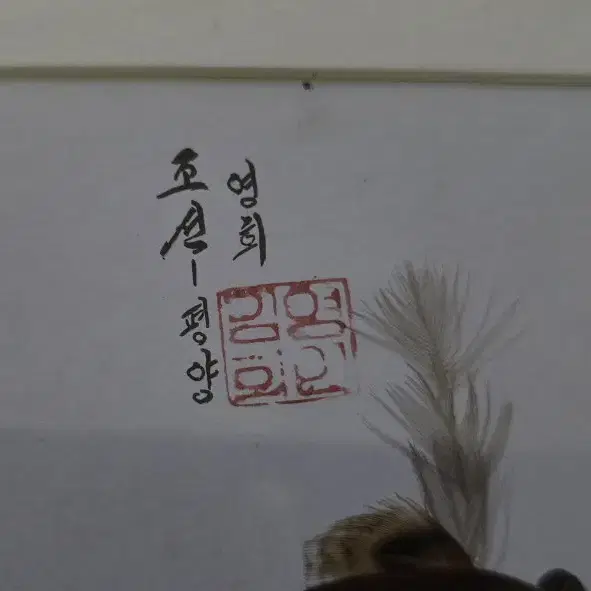 조선-평양
영희
김영
희인